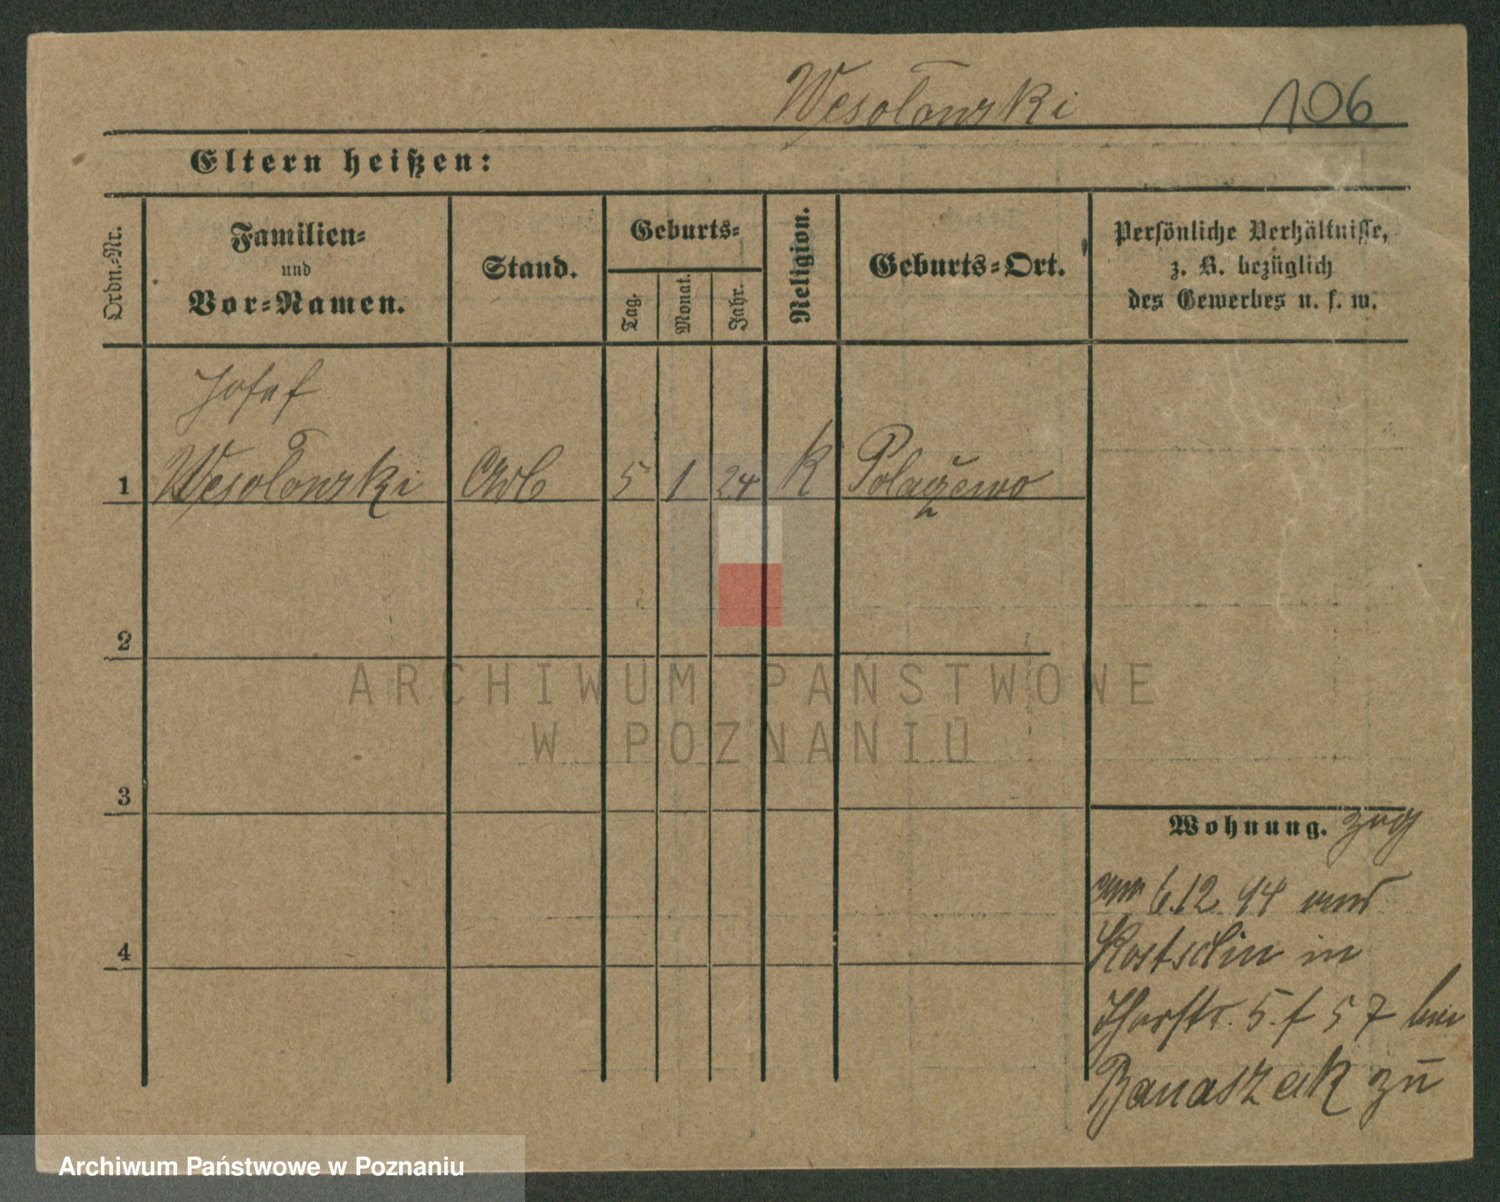 Wesołowski 106
Eltern heißen:
Ordn.-Nr.
Familien-
und
Vor-Namen.
Stand.
Geburts-
Tag.
Monat.
Jahr.
Religion.
Geburts-Ort.
Persönliche Verhältnisse,
z. B. bezüglich
des Gewerbes u. s. w.
Josef
1 Wesołowski Arb 5 1 24 K
2
3
4
Wohnung. zog
am 6.12. 94 aus
Kostschin in
5. f 57 bei
Banaszak zu
ARCHIWUM PAŃSTWOWE
W POZNANIU
Archiwum Państwowe w Poznaniu